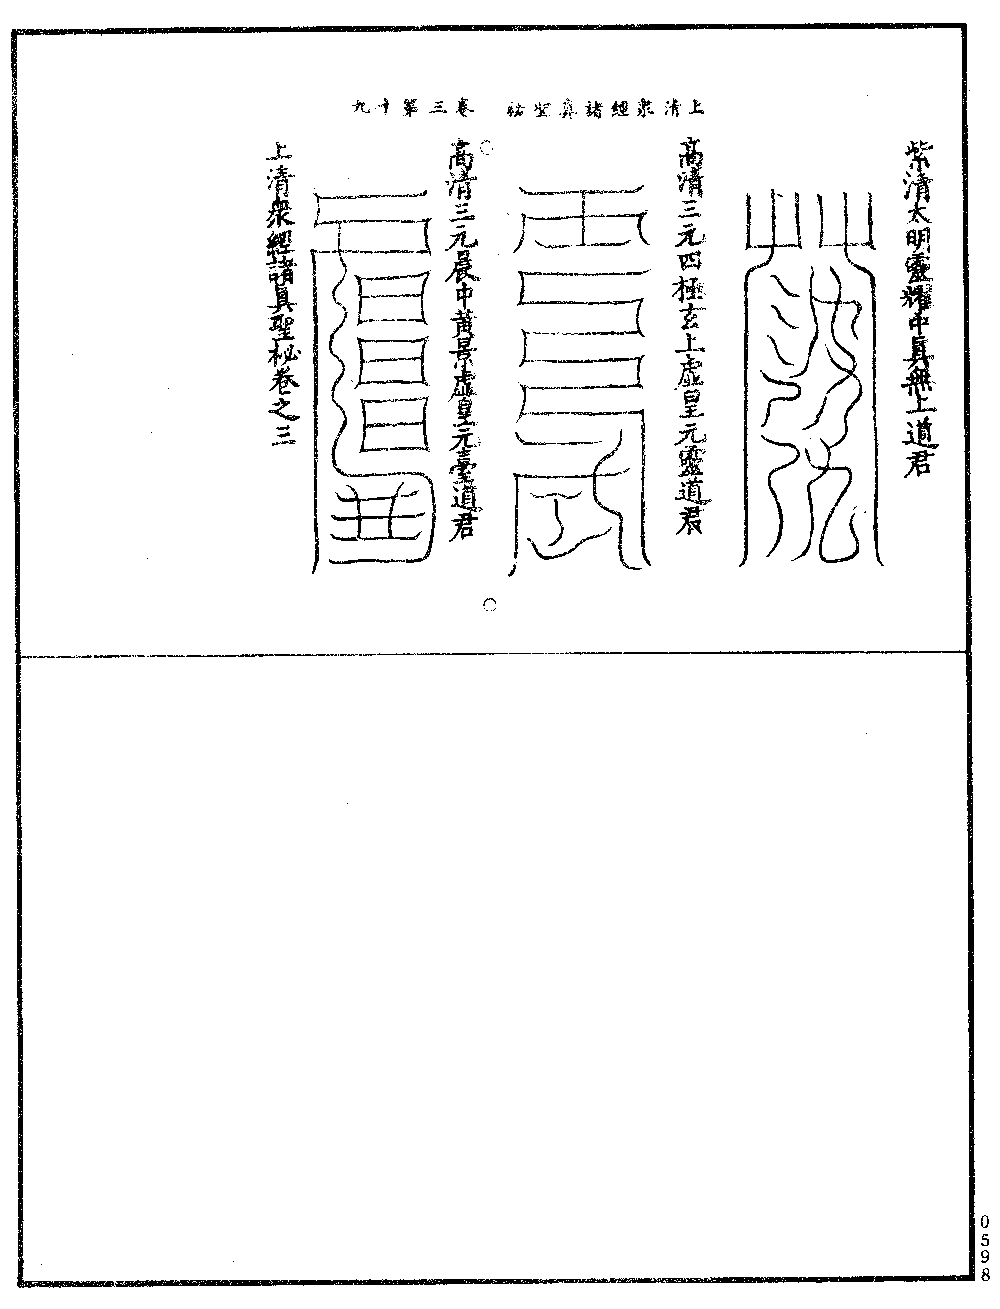 上清衆經諸真聖祕 卷三第十九
紫清太明靈耀中真無上道君
高清三元四極玄上虛皇元靈道君
高清三元晨中黃景虛皇元臺道君
上清衆經諸真聖祕卷之三
0598